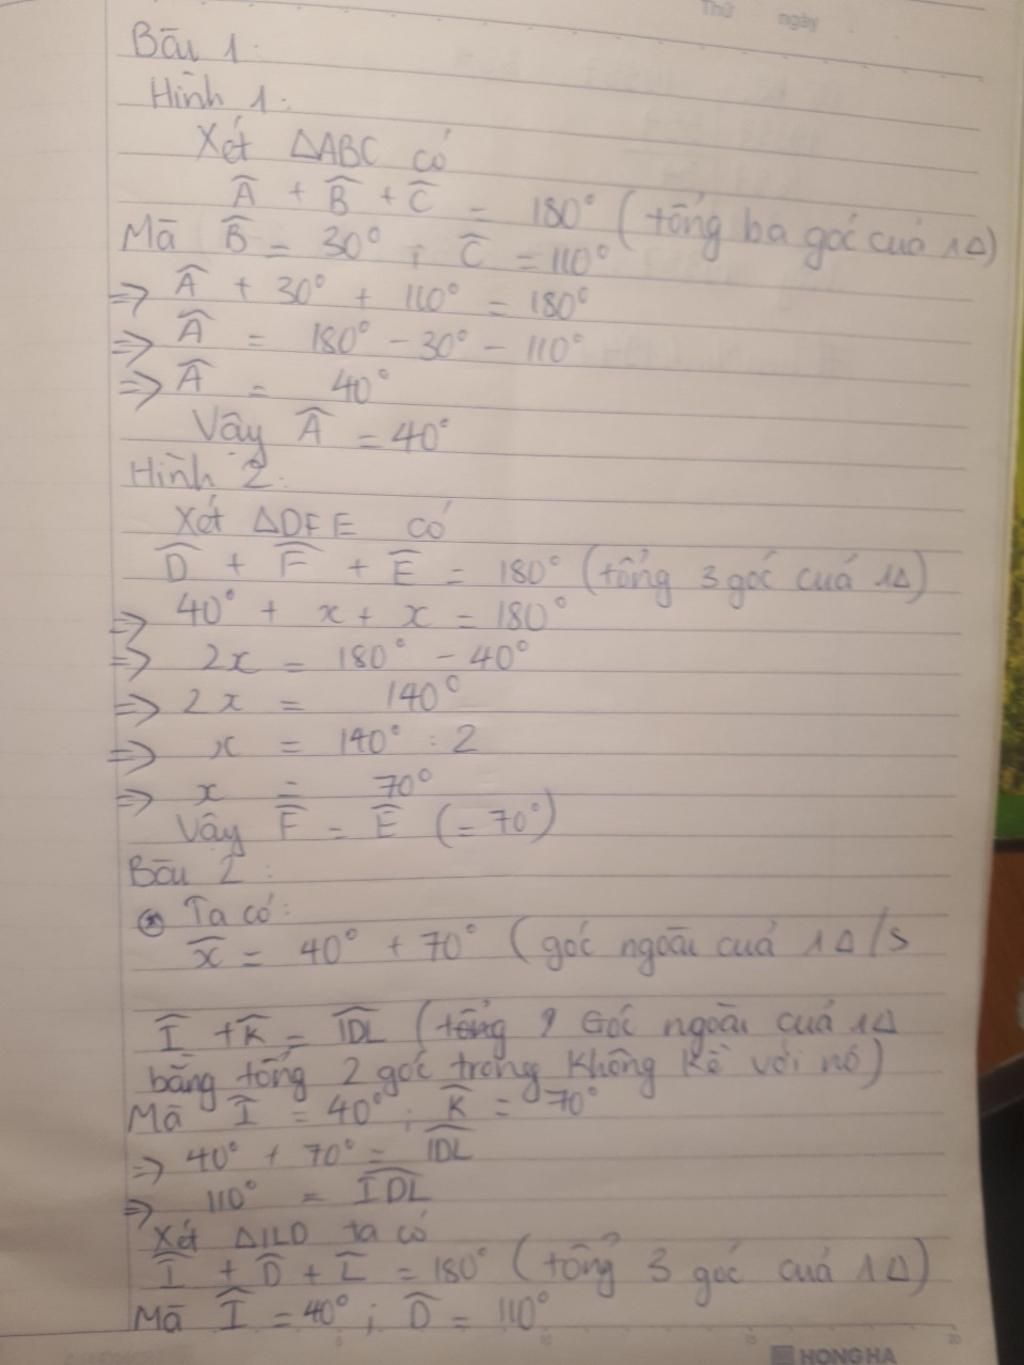 Thứ ngày
Bài 1:
Hình 1:
Xét ΔABC có
Â + B̂ + Ĉ = 180° (tổng ba góc của 1Δ)
Mà B̂ = 30° ; Ĉ = 110°
⇒ Â + 30° + 110° = 180°
⇒ Â = 180° - 30° - 110°
⇒ Â = 40°
Vậy Â = 40°
Hình 2:
Xét ΔDFE có
D̂ + F̂ + Ê = 180° (tổng 3 góc của 1Δ)
⇒ 40° + x + x = 180°
⇒ 2x = 180° - 40°
⇒ 2x = 140°
⇒ x = 140° : 2
⇒ x = 70°
Vậy F̂ = Ê (= 70°)
Bài 2:
Ta có:
x̂ = 40° + 70° (góc ngoài của 1Δ/s
Î + K̂ = IDL (tổng 9 Góc ngoài của 1Δ
bằng tổng 2 góc trong không kề với nó)
Mà Î = 40° ; K̂ = 70°
⇒ 40° + 70° = IDL
⇒ 110° = IDL
Xét ΔILD ta có
Î + D̂ + L̂ = 180° (tổng 3 góc của 1Δ)
Mà Î = 40° ; D̂ = 110°
HONG HA